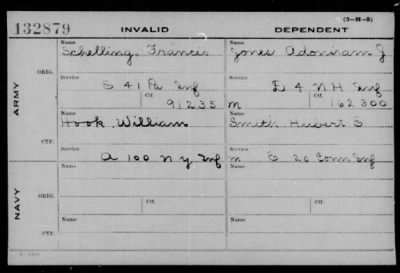 (3-H-5)
132879 INVALID DEPENDENT
Name Name
Schelling Francis Jones Adoniram J
ORIG.
Service Service
E 41 Pa Inf D 4 NH Inf
Ctf. Ctf.
91235 m 162300
ARMY
Name Name
Hook William Smith Hubert S
CTF.
Service Service
A 100 N Y Inf m E 20 Conn Inf
NAVY
Name Name
ORIG.
Service Ctf. Service Ctf.
Name Name
CTF.